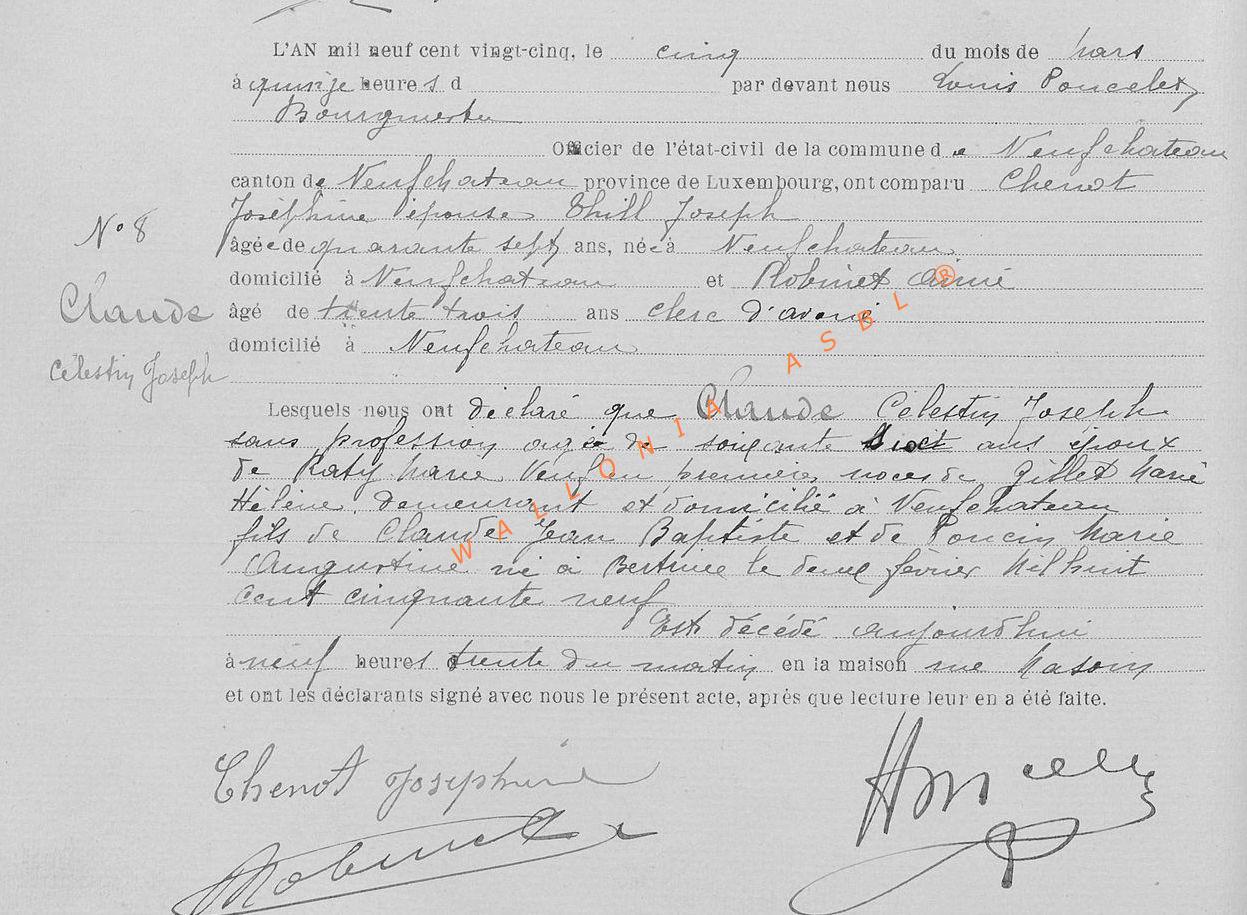 L'AN mil neuf cent vingt-cinq, le cinq du mois de Mars
à quinze heures d par devant nous Louis Poncelet,
Bourgmestre
Officier de l'état-civil de la commune de Neufchateau
canton de Neufchateau province de Luxembourg, ont comparu Chenot
Joséphine épouse Thill Joseph
âgée de quarante sept ans, née à Neufchateau
N° 8
domicilié à Neufchateau et Robinet Aimé
âgé de trente trois ans clerc d'avoué
Claude
domicilié à Neufchateau
Célestin Joseph
Lesquels nous ont déclaré que Claude Célestin Joseph
sans profession agé de soixante six ans époux
de Raty Marie Veuf en premières noces de Gillet Marie
Hélène. demeurant et domicilié à Neufchateau
fils de Claude Jean Baptiste et de Poncin Marie
Augustine né à Bertrix le deux février Mil huit
cent cinquante neuf
Est décédé aujourd'hui
à neuf heures trente du matin en la maison rue
et ont les déclarants signé avec nous le présent acte, après que lecture leur en a été faite.
Chenot Joséphine
Robinet
WALLONIA ASBL ®